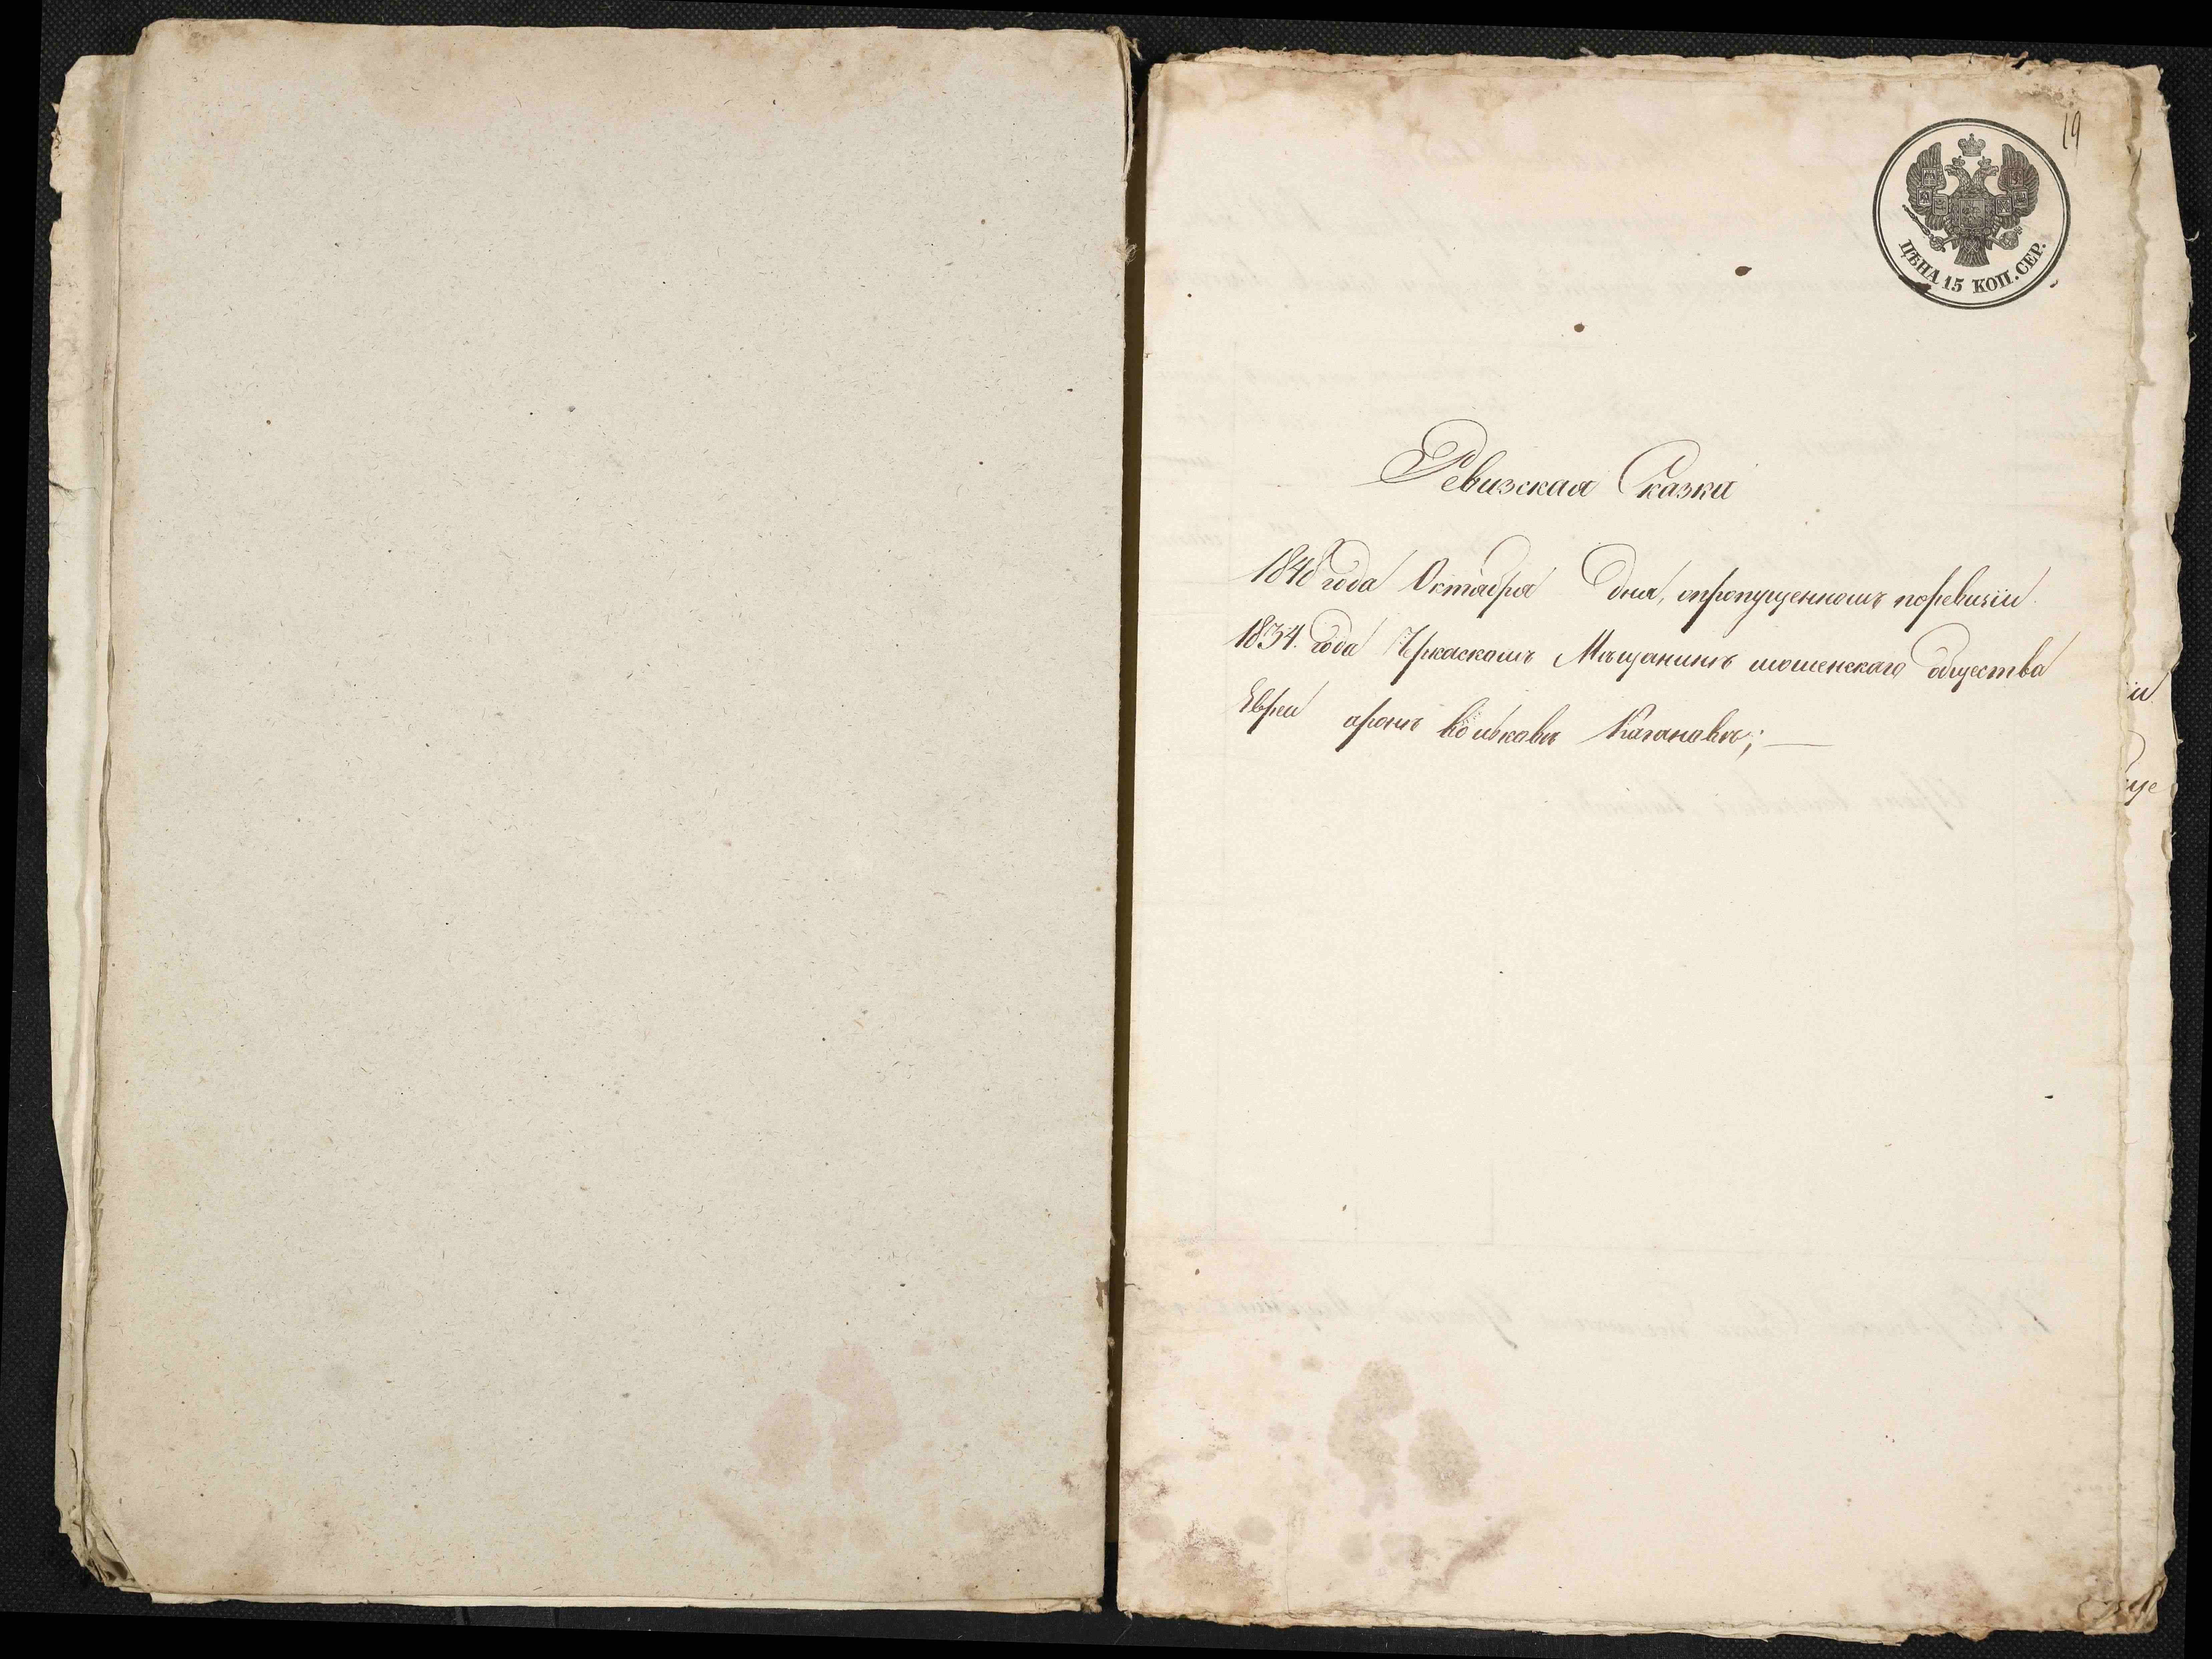 19
ЦѢНА 15 КОП. СЕР.
Ревизская Сказка
1848 года Октября дня, опропущенномъ поревизіи
1834. года Чркаскомъ Мѣщанинѣ мошенскаго общества
Евреи аронѣ Волковѣ Кагановѣ;—
іи
уще